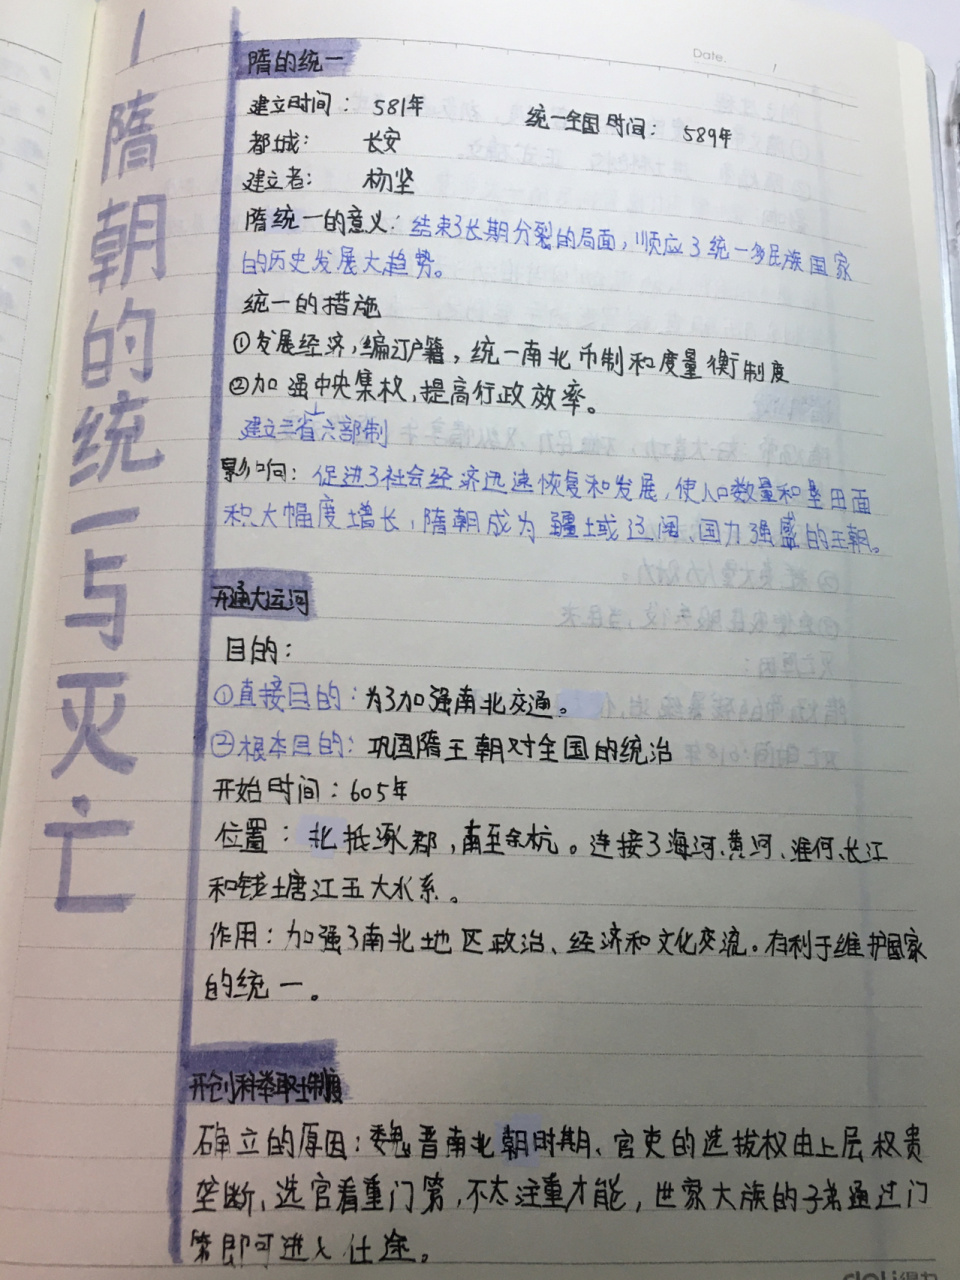 1 隋朝的统一与灭亡
Date.
隋的统一
建立时间：581年 统一全国时间：589年
都城：长安
建立者：杨坚
隋统一的意义：结束了长期分裂的局面，顺应了统一多民族国家
的历史发展大趋势。
统一的措施
①发展经济，编订户籍，统一南北币制和度量衡制度
②加强中央集权，提高行政效率。
建立三省六部制
影响：促进了社会经济迅速恢复和发展，使人口数量和垦田面
积大幅度增长，隋朝成为疆土或辽阔、国力强盛的王朝。
开通大运河
目的：
①直接目的：为了加强南北交通。
②根本目的：巩固隋王朝对全国的统治
开始时间：605年
位置：北抵涿郡，南至余杭。连接了海河、黄河、淮河、长江
和钱塘江五大水系。
作用：加强了南北地区政治、经济和文化交流。有利于维护国家
的统一。
开创科举取士制度
确立的原因：魏晋南北朝时期、官吏的选拔权由上层权贵
垄断，选官看重门第，不太注重才能，世家大族的子弟通过门
第即可进入仕途。
deli得力